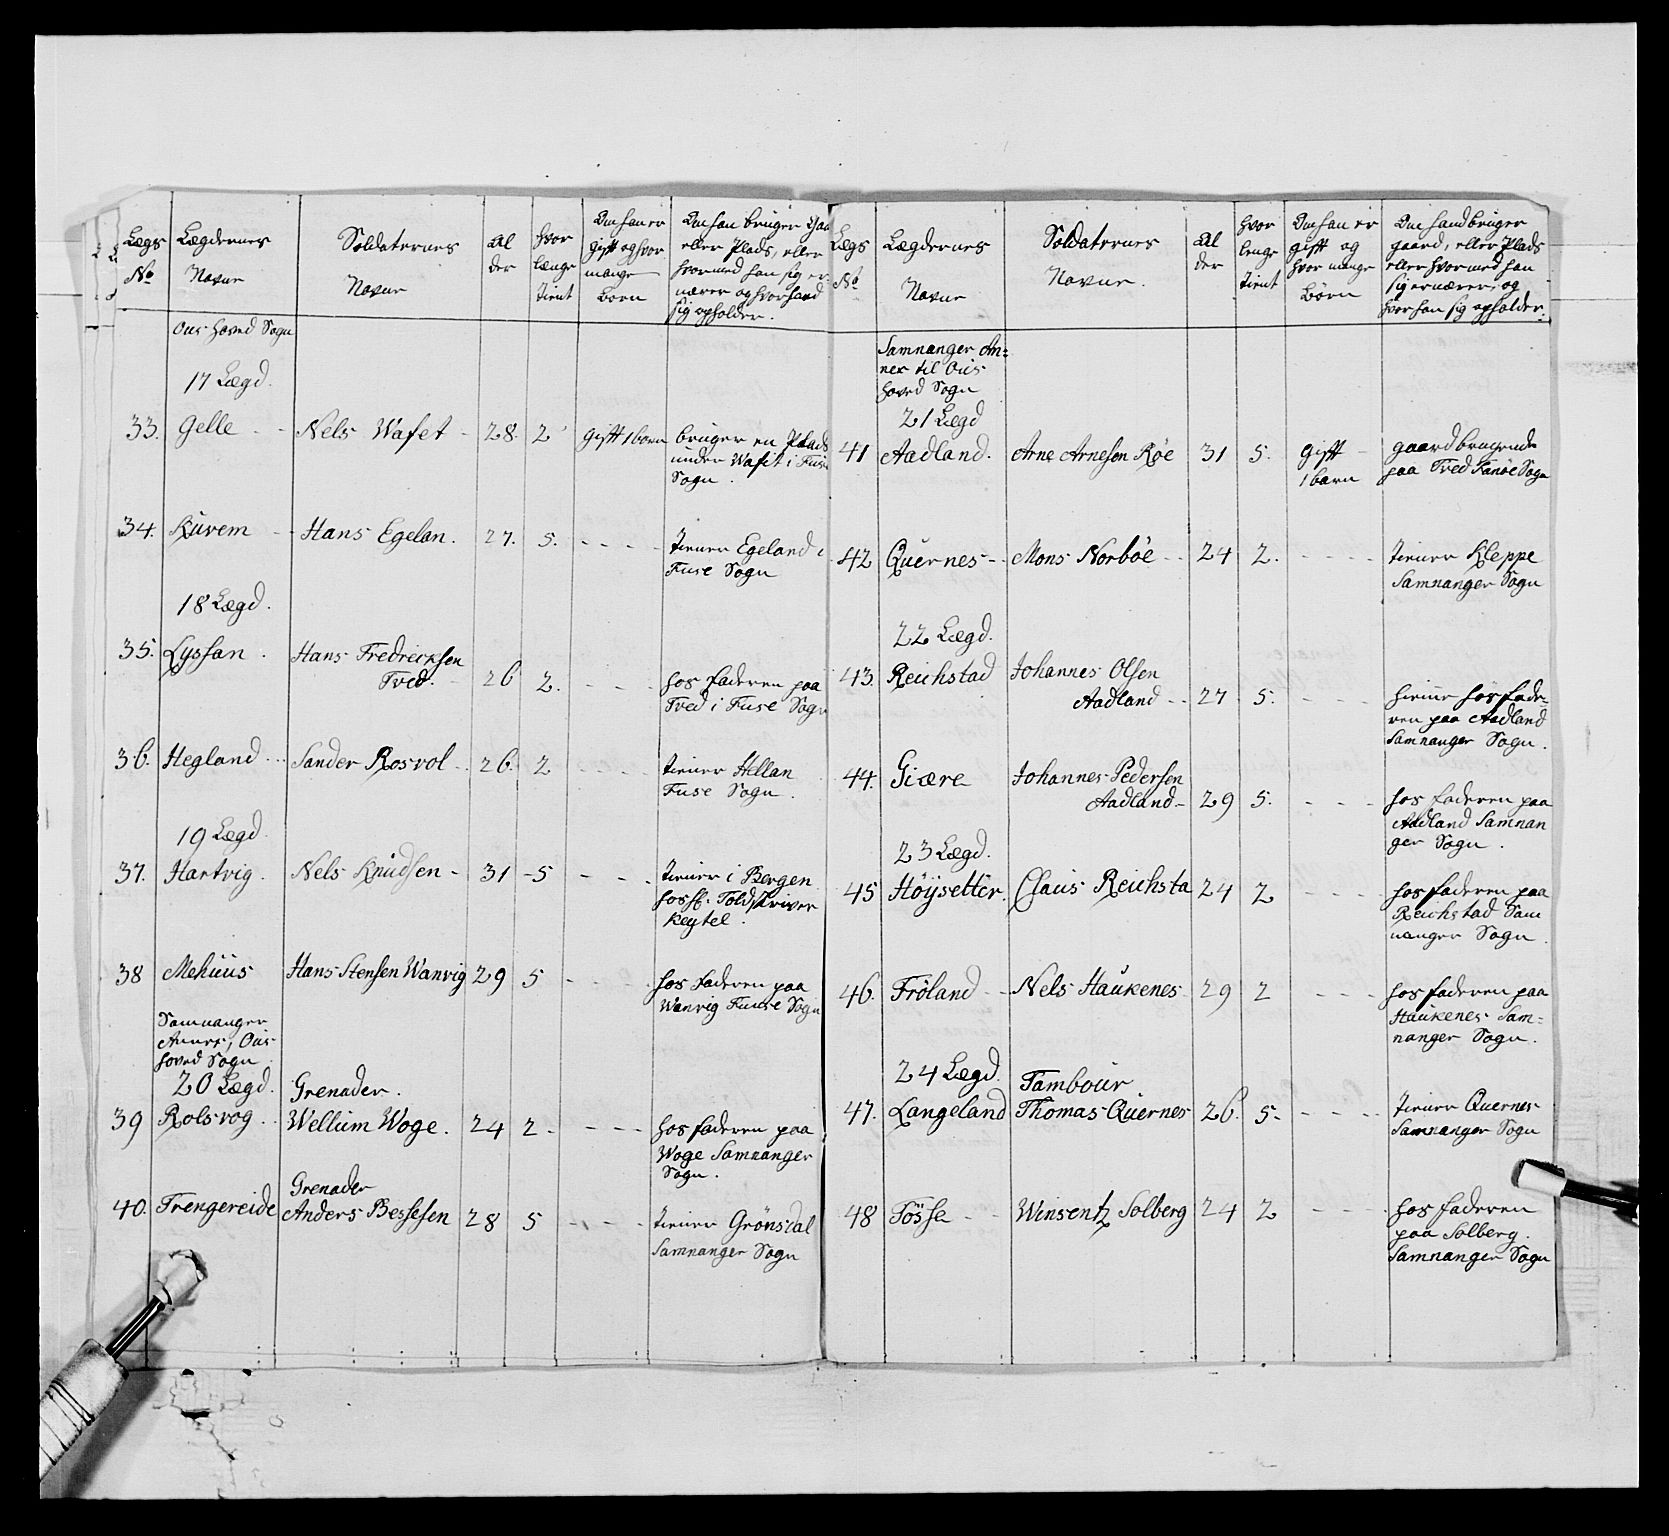 Lægs
No
Lægdernes
Navne
Soldaternes
Navne
Al
der
hvor
længe
tient
Om han er
gift og hvor
mange
Børn
Om han bruger Gaar
eller Plads, eller
hvormed han sig er
nærer og hvor hand
sig opholder.
Ous hoved Sogn
17 Lægd.
33. Gelle Nels Wafet 28. 2 gift 1 barn bruger en Plads
under Wafet i Fuse
Sogn.
34. Kuvem Hans Egelan. 27. 5. - - - - tiener Egeland i
Fuse Sogn
18 Lægd.
35. Lyssan. Hans Fredricksen
Tved. 26 2. - - - hos faderen paa
Tved i Fuse Sogn
36. Hegland Sander Rosvol 26. 2 - - - - tiener Hillan
Fuse Sogn.
19 Lægd.
37. Hartvig. Nels Knudsen - 31 - 5 - - - tiener i Bergen
hos H. Toldskriver
Keytel.
38 Mehuus Hans Stensen Wanvig 29 5 - - - - hos faderen paa
Wanvig Fuuse Sogn
Samnanger
Annex, Ous
hoved Sogn
20 Lægd. Grenader.
39 Rolsvog Wellum Woge. 24 2. - - - - hos faderen paa
Woge Samnanger
Sogn.
Grenader
40. Trengereide Anders Bessesen 28 5 - - - - tiener Grönsdal
Samnanger Sogn
Lægs
No
Lægdernes
Navne
Soldaternes
Navne.
Al
der
hvor
lenge
tient
Om han er
gift og
hvor mange
Börn
Om hand bruger
gaard, eller Plads
eller hvormed han
sig ernærer, og
hvor han sig opholder.
Samnanger An=
nex til Ous
hoved Sogn
21 Lægd
41 Aadland. Arne Arnesen Röe 31 5. gift
1 barn
gaard brugende
paa Tved Fanöe Sogn
42 Quernes - - Mons Norböe - - 24 2. - - - - tiener Kleppe
Samnanger Sogn
22 Lægd.
43. Reichstad Johannes Olsen
Aadland - - 27 5. - - - hos fade=
ren paa Aadland
Samnanger Sogn.
44. Giære Johannes Pedersen
Aadland - 29 5. - - - hos faderen paa
Aadland Samnan
ger Sogn.
23 Lægd.
45 Höysetter. Claus Reichsta 24 2 - - - hos faderen paa
Reichstad Sam
nanger Sogn.
46. Fröland - - Nels Haukenes 29 2 - - - - hos faderen paa
Haukenes Sam=
nanger Sogn.
24 Lægd. Tambour
47. Langeland Thomas Quernes 26. 5. - - - - tiener Quernes
Samnanger Sogn
48 Tösse - - Winsentz Solberg 24 2 - - - - hos faderen
paa Solberg.
Samnanger Sogn